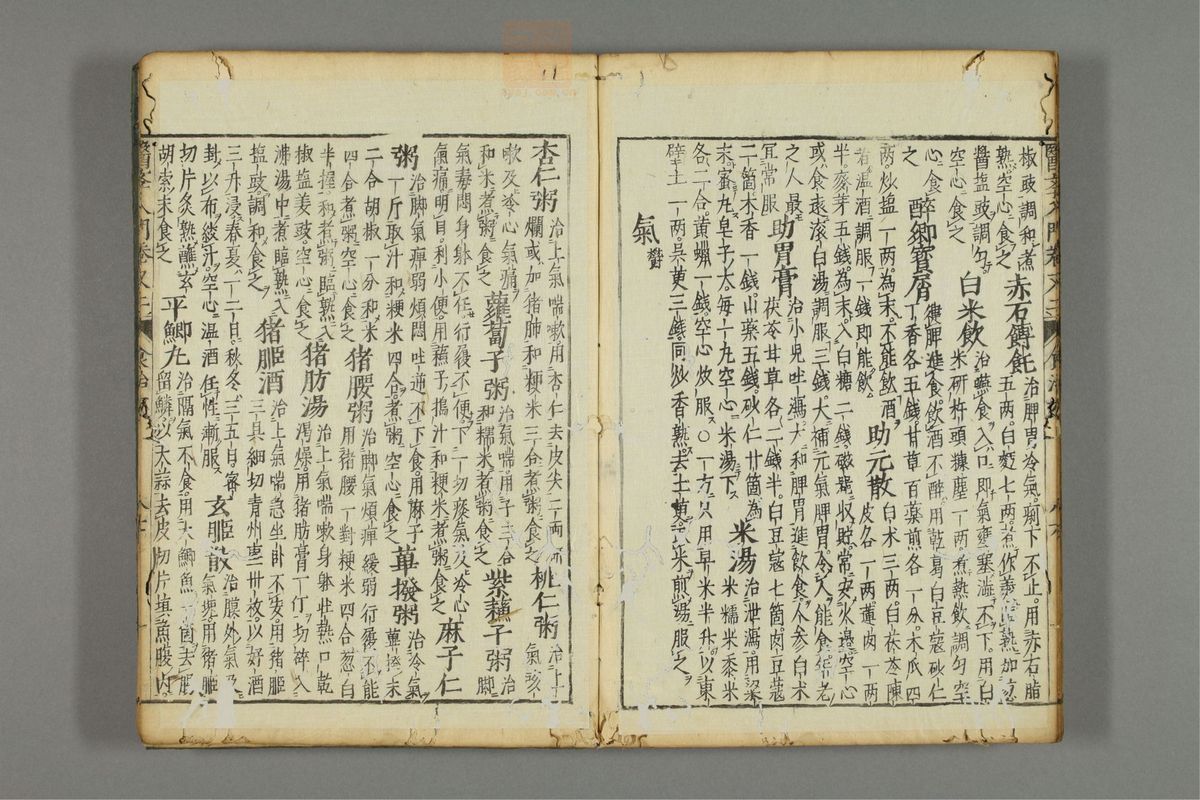 椒豉調和煮
熟空心食之 赤石餺飥 治脾胃冷氣痢下不止用赤石脂
五兩白麪七兩煮作羹熟加葱
醬塩豉調勻
空心食之 白米飲 治嚥食入口即氣壅塞澁不下用白
米研杵頭糠塵一兩煮熟飲調勻空
心食之 醉鄉寶屑 健脾進食飲酒不醉用乾葛白豆蔻砂仁
丁香各五錢甘草百藥煎各一分木瓜四
兩炒塩一兩爲末不能飲酒
者溫酒調服一錢即能飲 助元散 白朮三兩白茯苓陳
皮各一兩蓮肉一兩
半麥芽五錢爲末入白糖二錢磁器收貯常安火邊空心
或食遠滚白湯調服三錢大補元氣脾胃冷人能食
之人最
宜常服 助胃膏 治小兒吐瀉大和脾胃進飲食人參白朮
茯苓甘草各二錢半白豆蔻七箇肉豆蔻
二箇木香一錢山藥五錢砂仁廿箇爲
末蜜丸皂子大每一丸空心米湯下 米湯 治泄瀉用
米糯米黍米
各二合黄蠟一錢空心炊服○一方只用早米半升以東
壁土一兩吳茱三錢同炒香熟去土茱取米煎湯服之
氣欎
杏仁粥 治上氣喘嗽用杏仁去皮尖二兩研
爛或加猪肺和粳米三合煮粥食之 桃仁粥 治上
氣咳
嗽及冷心氣痛
和米煮粥食之 蘿蔔子粥 治氣喘用子三合
和糯米煮粥食之 紫蘇子粥 治
脚
氣毒悶身躰不任行履不便下一切痰氣及冷心
氣痛明目利小便用蘇子搗汁和粳米煮粥食之 麻子仁
粥 治脚氣痺弱煩悶吐逆不下食用麻子
一斤取汁和粳米四合煮粥空心食之 蓽撥粥 治冷氣
蓽撥末
二合胡椒一分和米
四合煮粥空心食之 猪腰粥 治脚氣煩痺緩弱行履不能
用猪腰一對粳米四合葱白
半握和煮粥臨熟入
椒塩姜豉空心食之 猪肪湯 治上氣喘嗽身躰壯熱口乾
渴燥用猪肪膏一斤切碎入
沸湯中煮臨熟入
塩豉調和食之 猪䏰酒 治上氣喘急坐卧不安用猪䏰
三具細切青州棗卅枚以好酒
三升浸春夏一二日秋冬三五日密
封以布絞汁空心溫酒任性漸服 玄䏰散 治腹外氣
氣塊用猪䏰
切片炙熟蘸玄
胡索末食之 平鯽丸 治隔氣不食用大鯽魚一箇去腸
留鱗以大蒜去皮切片填魚腹內